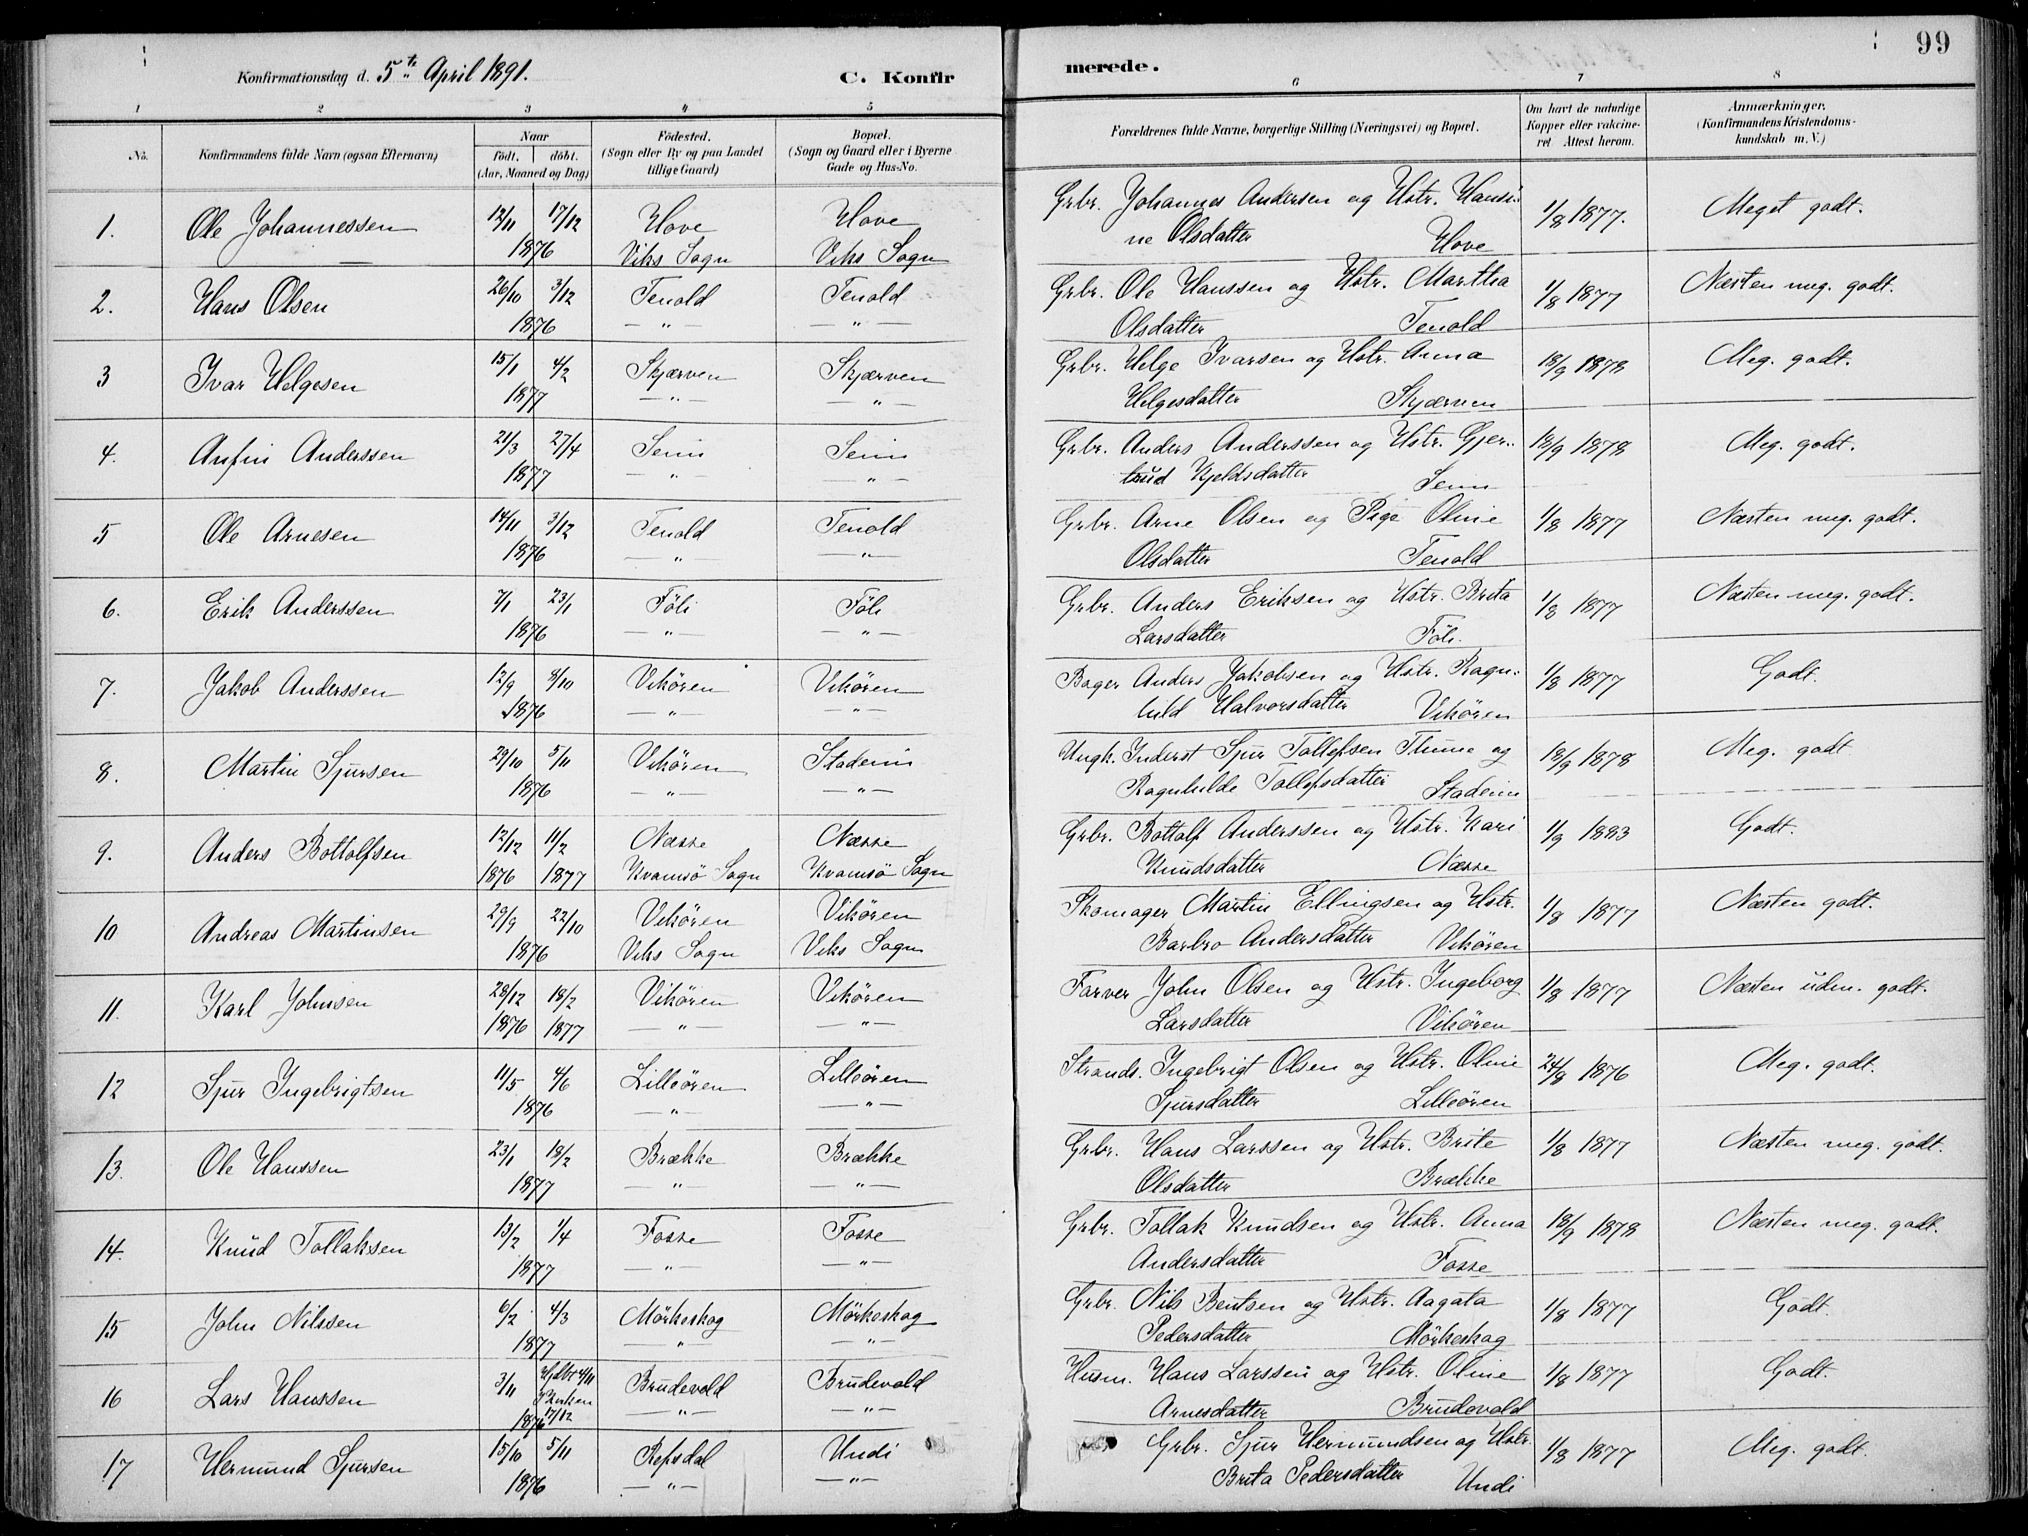 99
Konfirmationsdag d. 5te April 1891. C. Konfirmerede.
1 2 3 4 5 6 7 8
No. Konfirmandens fulde Navn (ogsaa Efternavn) Naar født, døbt. (Aar, Maaned og Dag) Fødested. (Sogn eller By og paa Landet tillige Gaard) Bopæl. (Sogn og Gaard eller i Byerne Gade og Hus-No. Forældrenes fulde Navne, borgerlige Stilling (Næringsvei) og Bopæl. Om havt de naturlige Kopper eller vakcineret Attest herom. Anmærkninger. (Konfirmandens Kristendomskundskab m. V.)
1. Ole Johannessen 12/11 17/12 Hove Hove Grbr. Johannes Andersen og Hstr. Hansi- 1/8 1877. Meget godt.
1876 Viks Sogn Viks Sogn ne Olsdatter Hove
2. Hans Olsen 26/10 3/12 Tenold Tenold Grbr. Ole Hanssen og Hstr. Martha 1/8 1877 Næsten meg. godt.
1876 — " — — " — Olsdatter Tenold
3 Ivar Helgesen 15/1 4/2 Skjærven Skjærven Grbr. Helge Ivarsen og Hstr. Anna 18/9 1878 Meg. godt.
1877 — " — — " — Helgesdatter Skjærven
4. Anfin Anderssen 21/3 27/4 Seim Seim Grbr. Anders Anderssen og Hstr. Gjer- 18/9 1878 Meg. godt.
1877 — " — — " — trud Kjeldsdatter Seim
5 Ole Arnesen 14/11 3/12 Tenold Tenold Grbr. Arne Olsen og Pige Oline 1/8 1877 Næsten meg. godt.
1876 — " — — " — Olsdatter Tenold
6. Erik Anderssen 7/1 23/1 Föli Föli Grbr. Anders Eriksen og Hstr. Brita 1/8 1877 Næsten meg. godt.
1876 — " — — " — Larsdatter Föli.
7. Jakob Anderssen 12/9 8/10 Vikören Vikören Bager Anders Jakobsen og Hstr. Ragn- 1/8 1877 Godt.
1876 — " — — " — hild Halvorsdatter Vikören
8. Martin Sjursen 29/10 5/11 Vikören Stadeim Ungk. Inderst Sjur Tollefsen Thune og 18/9 1878 Meg. godt
1876 — " — — " — Ragnhilde Tollefsdatter Stadeim
9. Anders Bottolfsen 12/12 11/2 Næsse Næsse Grbr. Bottolf Anderssen og Hstr. Kari 1/9 1883 Godt.
1876 1877 Kvamsö Sogn Kvamsö Sogn Knudsdatter Næsse
10 Andreas Martinsen 29/9 22/10 Vikören Vikören Skomager Martin Ellingsen og Hstr. 1/8 1877 Næsten godt.
1876 Viks Sogn Viks Sogn Barbro Andersdatter Vikören
11. Karl Johnsen 28/12 18/2 Vikören Vikören Farver John Olsen og Hstr. Ingeborg 1/8 1877 Næsten udm. godt.
1876 1877 — " — — " — Larsdatter Vikören
12 Sjur Ingebrigtsen 11/5 4/6 Lilleören Lilleören Strands. Ingebrigt Olsen og Hstr. Oline 24/9 1876 Meg. godt.
1876 — " — — " — Sjursdatter Lilleören
13. Ole Hanssen 23/1 18/2 Brække Brække Grbr. Hans Larssen og Hstr. Brite 1/8 1877 Næsten meg. godt.
1877 — " — — " — Olsdatter Brække
14. Knud Tollaksen 13/2 1/4 Fosse Fosse Grbr. Tollak Knudsen og Hstr. Anna 18/9 1878 Næsten meg. godt.
1877 — " — — " — Andersdatter Fosse
15 John Nilssen 6/2 4/3 Mörkeskog Mörkeskog Grbr. Nils Bentsen og Hstr. Aagata 1/8 1877 Godt.
1877 — " — — " — Pedersdatter Mörkeskog
16 Lars Hanssen 3/11 Hjdbt 4/11 Brudevold Brudevold Husm. Hans Larssen og Hstr. Oline 1/8 1877 Godt.
1876 i Kirken 17/12 — " — — " — Arnesdatter Brudevold
17 Hermund Sjursen 15/10 5/11 Repsdal Undi Grbr. Sjur Hermundsen og Hstr. 1/8 1877 Meg. godt.
1876 — " — — " — Brita Pedersdatter Undi